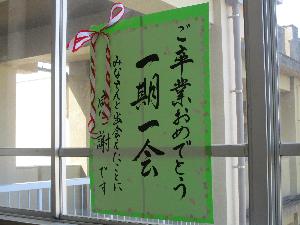 ご卒業おめでとう
一期一会
みなさんと出会えたことに
感謝です